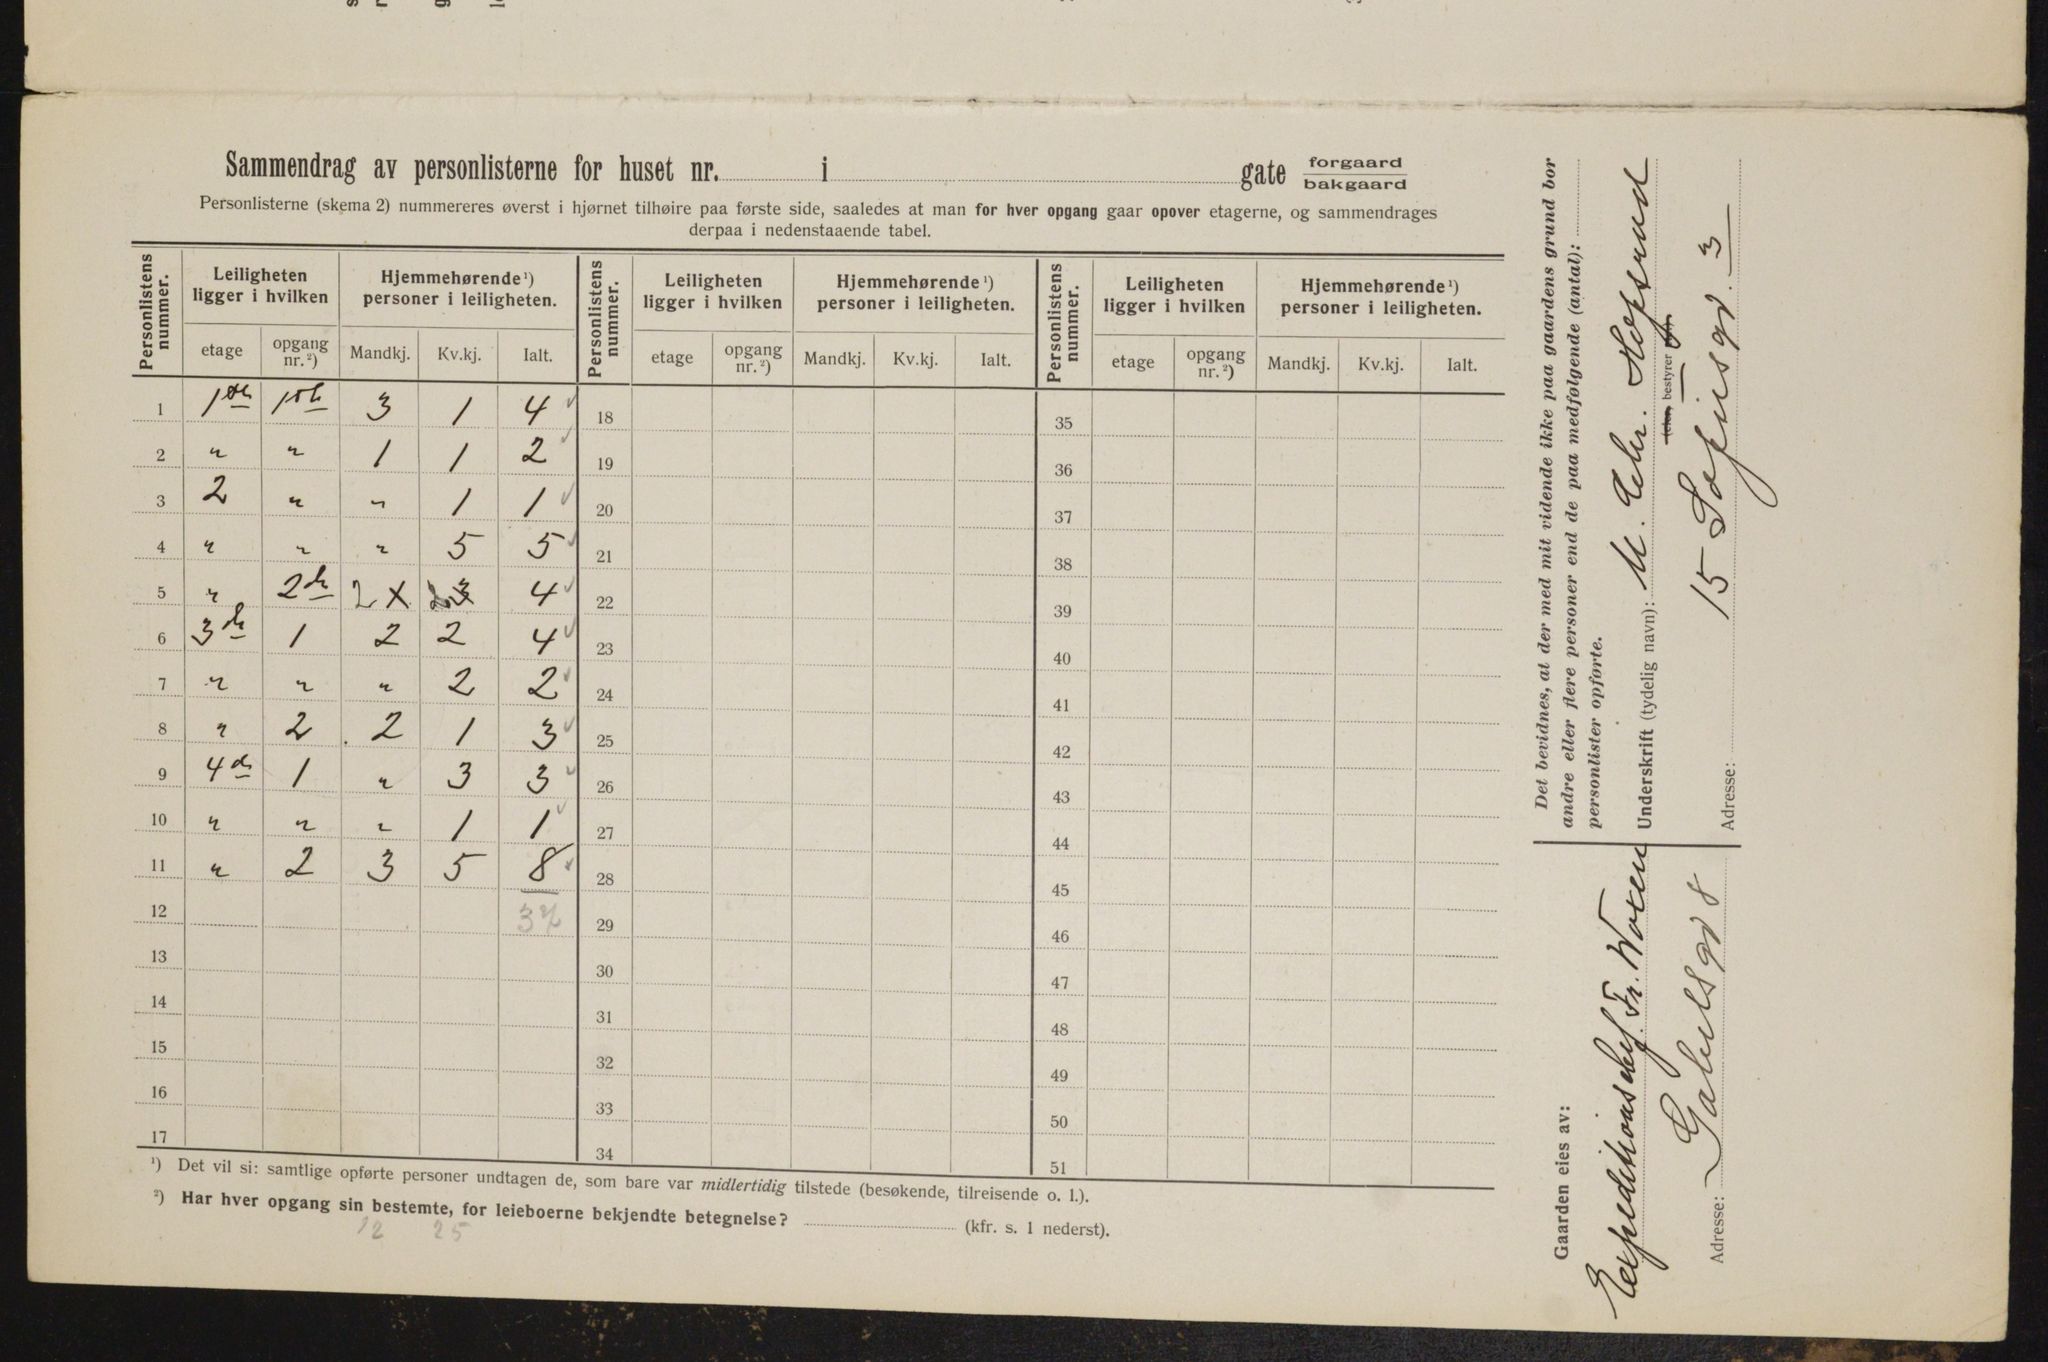 Sammendrag av personlisterne for huset nr. i gate forgaard
bakgaard
Personlisterne (skema 2) nummereres øverst i hjørnet tilhøire paa første side, saaledes at man for hver opgang gaar opover etagerne, og sammendrages
derpaa i nedenstaaende tabel.
Personlistens nummer. Leiligheten ligger i hvilken Hjemmehørende ¹) personer i leiligheten. Personlistens nummer. Leiligheten ligger i hvilken Hjemmehørende ¹) personer i leiligheten. Personlistens nummer. Leiligheten ligger i hvilken Hjemmehørende ¹) personer i leiligheten.
etage opgang nr. ²) Mandkj. Kv.kj. Ialt. etage opgang nr. ²) Mandkj. Kv.kj. Ialt. etage opgang nr. ²) Mandkj. Kv.kj. Ialt.
1 1ste 1ste 3 1 4 18 35
2 " " 1 1 2 19 36
3 2 " " 1 1 20 37
4 " " " 5 5 21 38
5 " 2de 2 4 22 39
6 3de 1 2 2 4 23 40
7 " " " 2 2 24 41
8 " 2 2 1 3 25 42
9 4de 1 " 3 3 26 43
10 " " " 1 1 27 44
11 " 2 3 5 8 28 45
12 37 29 46
13 30 47
14 31 48
15 32 49
16 33 50
17 34 51
¹) Det vil si: samtlige opførte personer undtagen de, som bare var midlertidig tilstede (besøkende, tilreisende o. l.).
²) Har hver opgang sin bestemte, for leieboerne bekjendte betegnelse? (kfr. s. 1 nederst).
12 25
Det bevidnes, at der med mit vidende ikke paa gaardens grund bor
andre eller flere personer end de paa medfølgende (antal):
personlister opførte.
Underskrift (tydelig navn): M. Chr.
bestyrer
Adresse: 15 Sofiesgt. 3
Gaarden eies av:
Expeditionschef. Fr. Woxen
Adresse: Gabelsgt 8